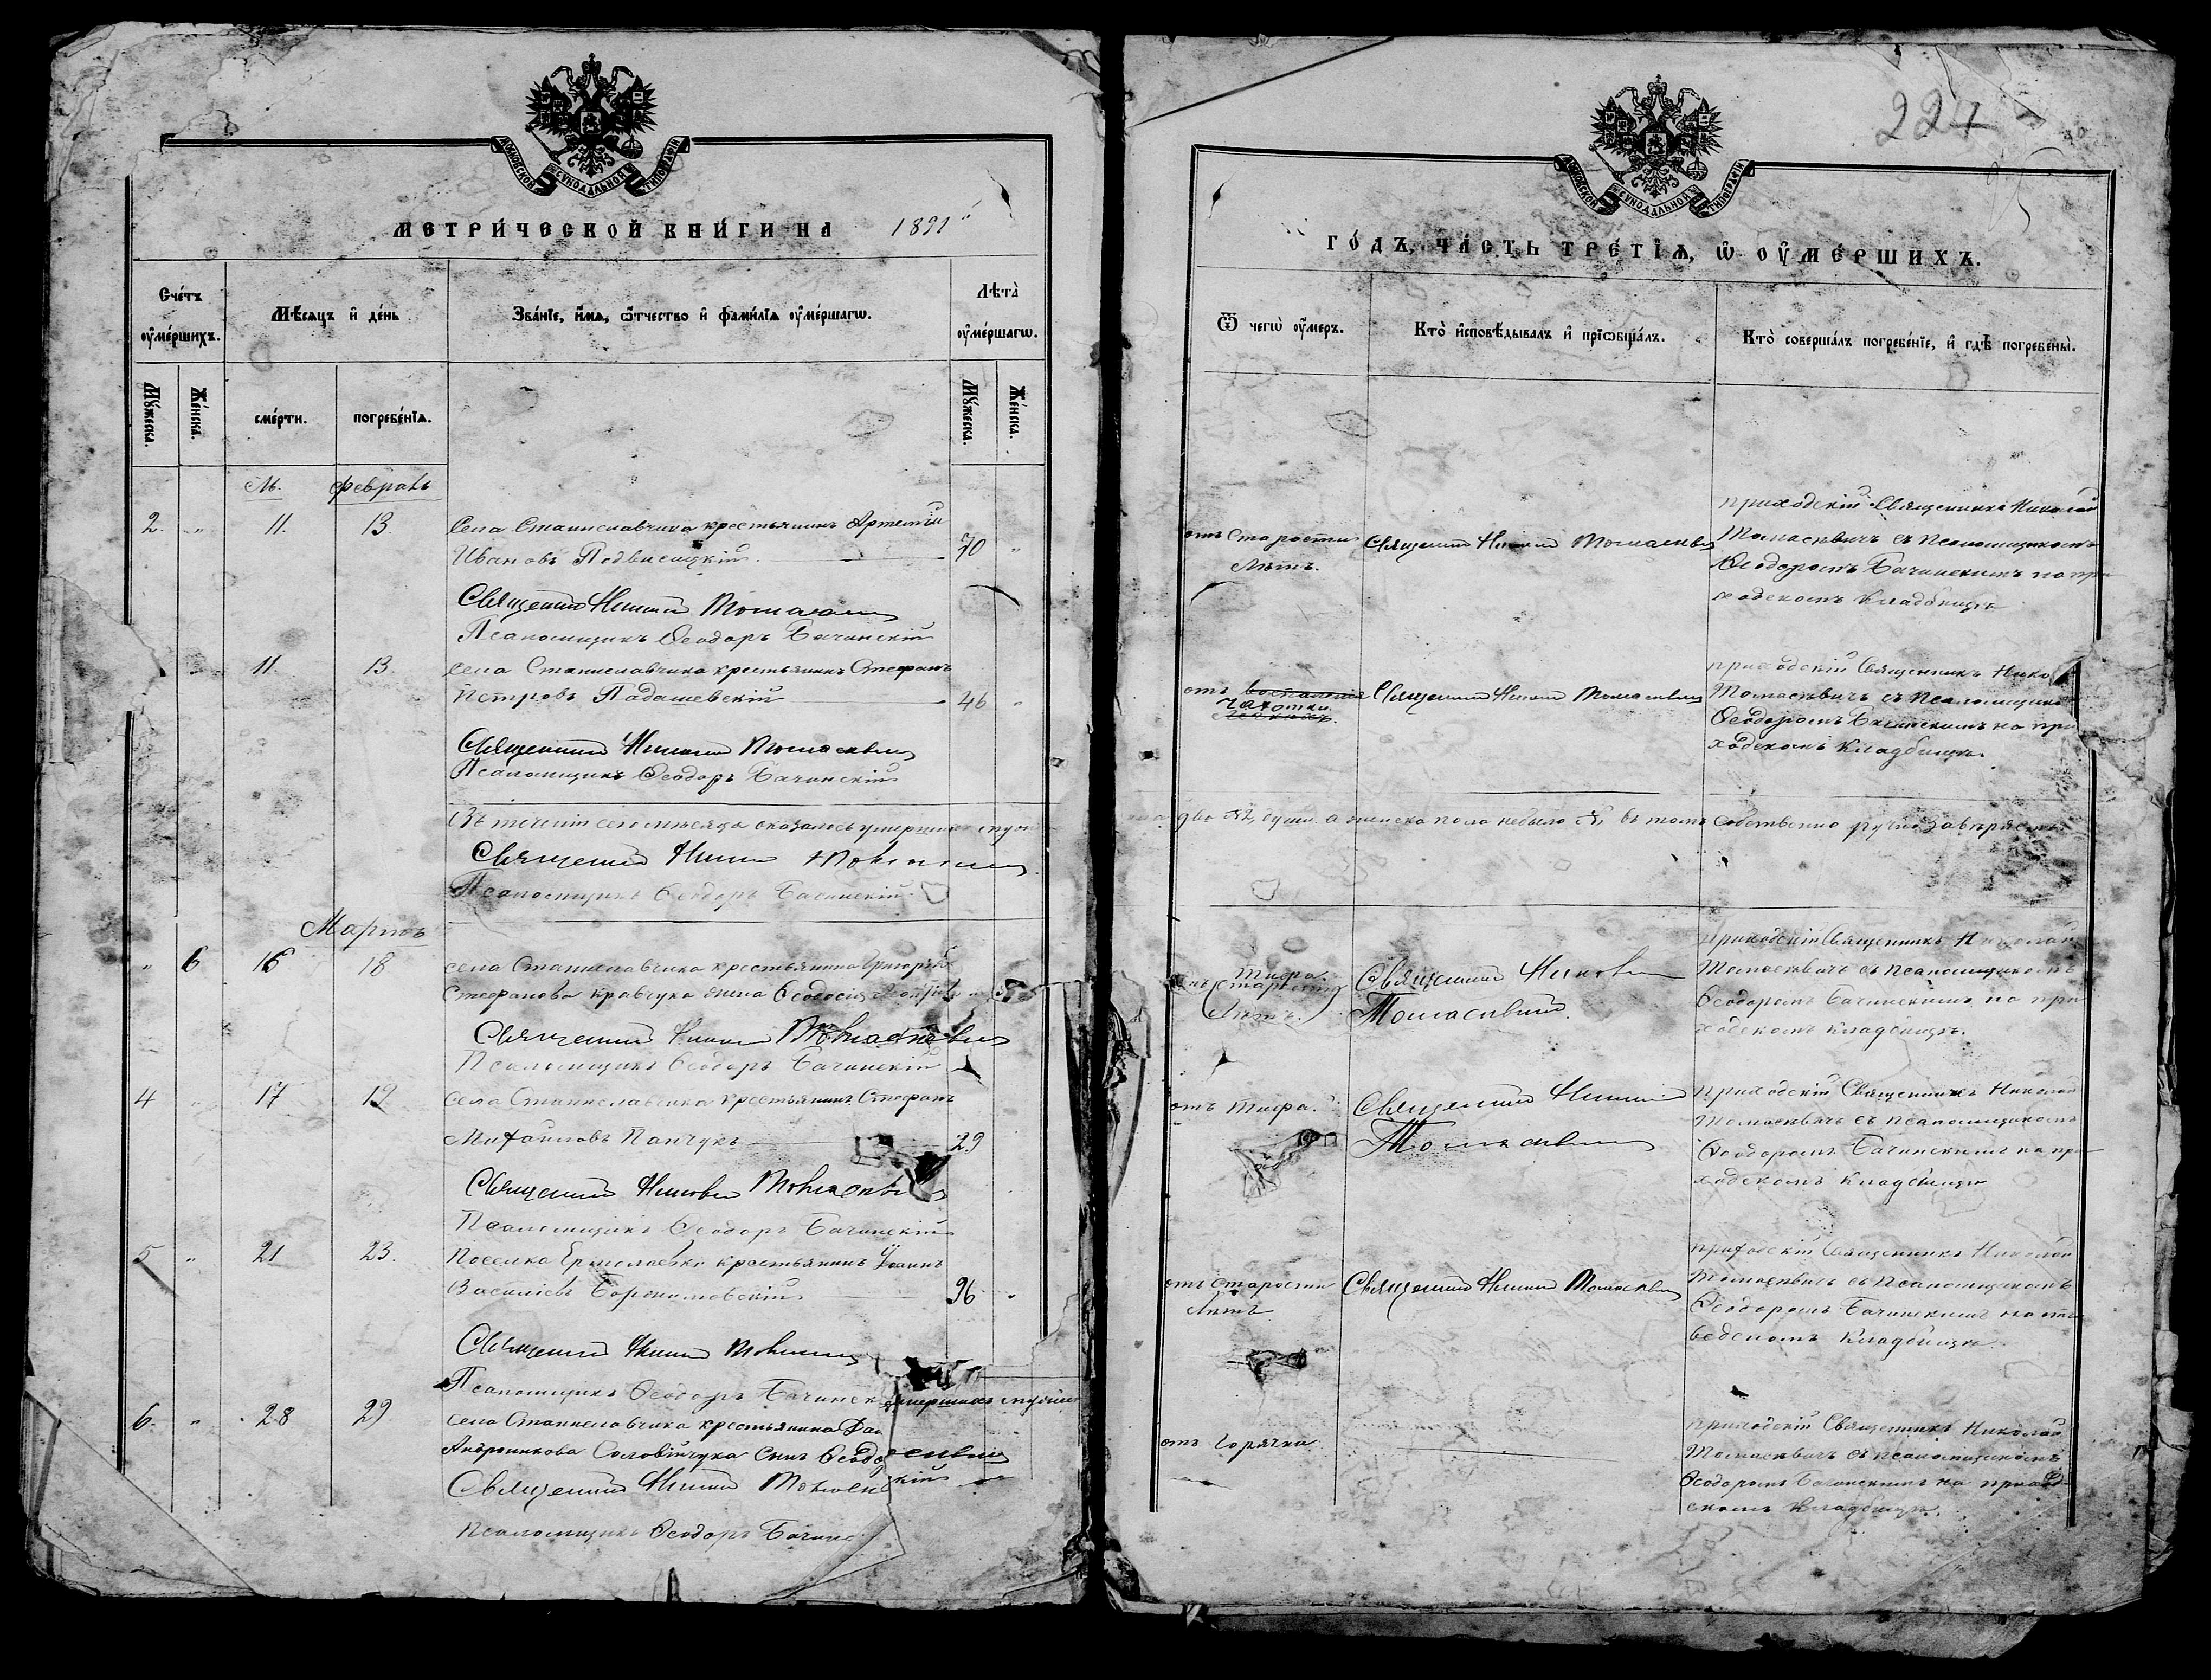 МОСКОВСКОЙ СѴНОДАЛЬНОЙ ТИПОГРАФІИ
МЕТРИ́ЧЕСКОЙ КНИ́ГИ НА 1891
Сче́тъ оу҆ме́ршихъ.
Мѣ́сяцъ и҆ де́нь
Зва́нїе, и҆́мѧ, ѻ҆́тчество и҆ фами́лїѧ оу҆ме́ршагѡ.
Лѣта̀ оу҆ме́ршагѡ.
Мꙋ́жеска.
Же́нска.
сме́рти.
погребе́нїѧ.
Мꙋ́жеска.
Же́нска.
М. Февраль
2. " 11. 13. Села Станиславчика крестьянинъ Артемій
Ивановъ Подвисоцкій. 70 "
Священникъ Николай Томасевичъ
Псаломщикъ Ѳеодоръ Бачинскій
11. 13. Села Станиславчика крестьянинъ Стефанъ
Петровъ Падашевскій 46 "
Священникъ Николай Томасевичъ
Псаломщикъ Ѳеодоръ Бачинскій
Въ теченіи сего мѣсяца оказалось умершихъ
Священникъ Николай Томасевичъ
Псаломщикъ Ѳеодоръ Бачинскій
Мартъ
" 6 16 18 села Станиславчика крестьянина Григорія
Стефанова Кравчука жена Ѳеодосія
Священникъ Николай Томасевичъ
Псаломщикъ Ѳеодоръ Бачинскій
4 " 17 19 Села Станиславчика крестьянинъ Стефанъ
Михайловъ Панчукъ 29
Священникъ Николай Томасевичъ
Псаломщикъ Ѳеодоръ Бачинскій
5 " 21 23. Поселка крестьянинъ Іоаннъ
Василіевъ 96 "
Священникъ Николай Томасевичъ
Псаломщикъ Ѳеодоръ Бачинск
6. " 28 29 села Станиславчика крестьянина
Андроникова Соловійчука сынъ
Священникъ Николай
Псаломщикъ Ѳеодоръ Бачинс
227
МОСКОВСКОЙ СѴНОДАЛЬНОЙ ТИПОГРАФІИ
ГО́ДЪ, ЧА́СТЬ ТРЕ́ТЇѦ, Ѡ҆ ОУ҆МЕ́РШИХЪ.
Ѿ чегѡ̀ оу҆́меръ.
Кто̀ и҆сповѣ́дывалъ и҆ прїѡбща́лъ.
Кто̀ соверша́лъ погребе́нїе, и҆ гдѣ̀ погребены̀.
отъ Старости
Лѣтъ.
Священникъ Николай Томасевичъ
приходскій Священникъ Николай
Томасевичъ съ псаломщикомъ
Ѳеодоромъ Бачинскимъ на при
ходскомъ кладбищѣ
отъ воспаленія
чахотки
легкихъ.
Священникъ Николай Томасевичъ
приходскій Священникъ Нико
Томасевичъ съ псаломщико
Ѳеодоромъ Бачинскимъ на при
ходскомъ кладбищѣ
два 2, души. а женска пола небыло въ томъ собственно ручно завѣряемъ
Тифа
Старости
Лѣтъ.
Священникъ Николай
Томасевичъ.
приходскій Священникъ Николай
Томасевичъ съ псаломщикомъ
Ѳеодоромъ Бачинскимъ на при
ходскомъ кладбищѣ.
отъ Тифа.
Священникъ Николай
Томасевичъ
приходскій Священникъ Николай
Томасевичъ съ псаломщикомъ
Ѳеодоромъ Бачинскимъ на при
ходскомъ кладбищѣ
отъ Старости
Лѣтъ
Священникъ Николай Томасевичъ
приходскій Священникъ Николай
Томасевичъ съ псаломщикомъ
Ѳеодоромъ Бачинскимъ
кладбищѣ
отъ Горячки
приходскій Священникъ Николай
Томасевичъ съ псаломщикомъ
Ѳеодоромъ Бачинскимъ на приход-
скомъ кладбищѣ.